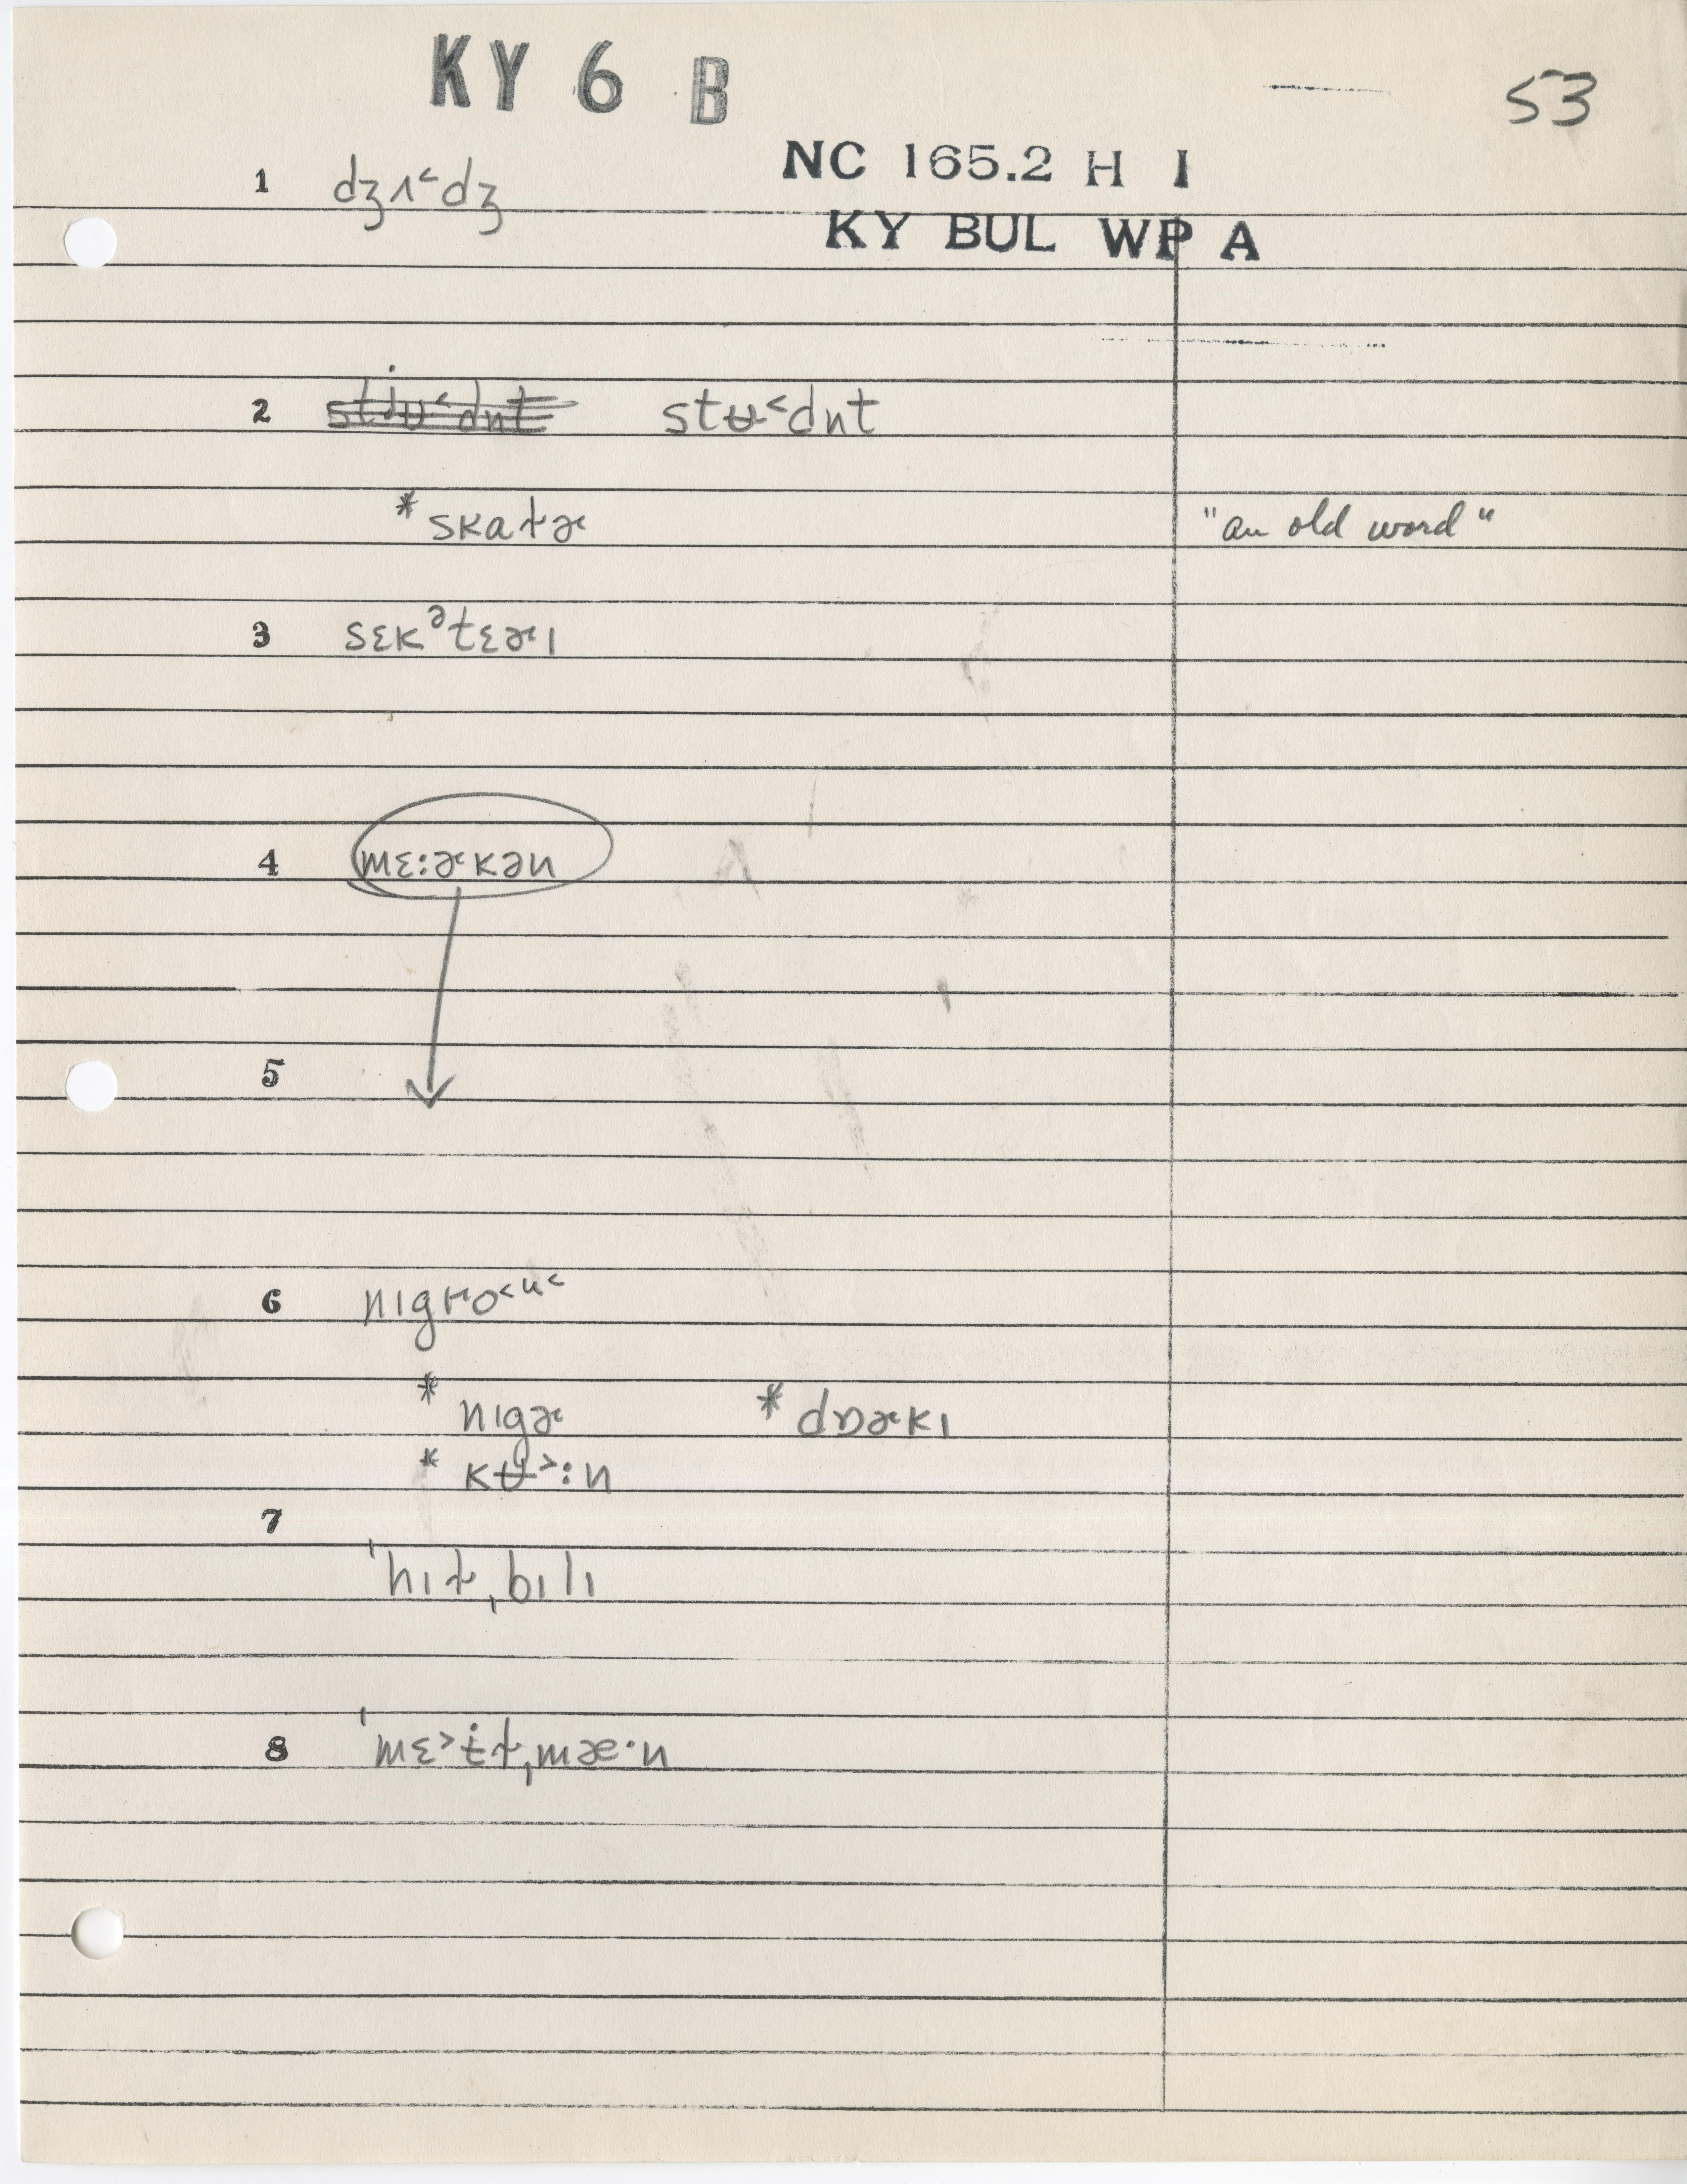 KY 6 B
53
NC 165.2 H I
1 dʒʌ˂dʒ
KY BUL WP A
2 stju˂dnt stʉ˂dnt
*skat̬ɚ "an old word"
3 sɛkᵊt̬ɛɚɪ
4 mɛ:ɚkən
5
6 nɪgro˂ᵘ˂
*nɪgɚ *dɒɚkɪ
*kʉ˃:n
7
ˈhɪt̬ˌbɪlɪ
8 ˈmɛ˃ɨt̬ˌmæ·n